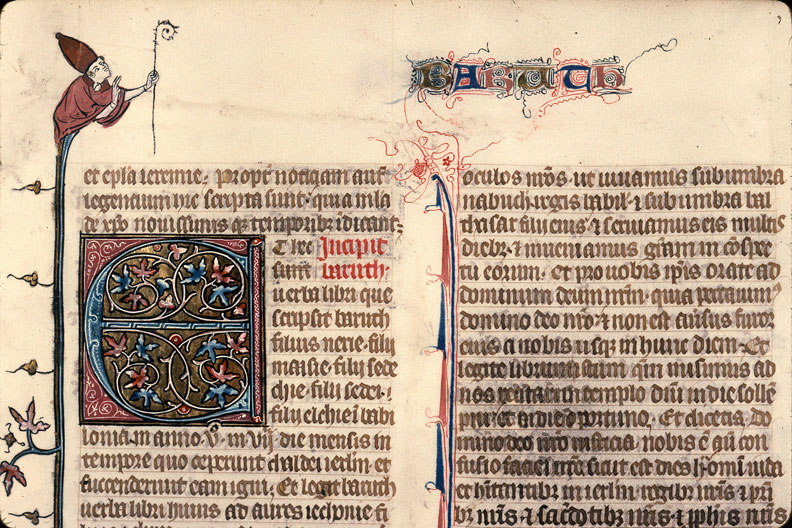 BARUCH
et epla ieremie. propt notitiam aut
legentium hic scripta sunt. quia mla
de xpo nouissimis q; temporibz idicant.
T hec Incipit
sunt baruch.
uerba libri que
scripsit baruch
filius nerie filii
maasie filii sede
chie filii sedei.
filii elchie i babi
lonia. in anno. v. in vij. die mensis in
tempore quo ceperunt chaldei ierlm et
succenderunt eam igni. Et legit baruch
uerba libri huius ad aures iechonie fi
oculos nros. ut uiuamus sub umbra
nabuch. regis babil. ⁊ sub umbra bal
thasar filii eius. ⁊ seruiamus eis multis
diebz. ⁊ inueniamus grām in cōspec
tu eorum. Et pro uobis ip̄is orate ad
dominum deum nrm. quia peccauim
domino deo nro. ⁊ non est auersus furor
eius a nobis usq; in hunc diem. Et
legite librum istum. quē misimus ad
uos recitari in templo dn̄i in die sollē
pni. et in die oportuno. Et dicetis. do
mino deo nro iusticia. nobis ē aū con
fusio faciei nre. sicut est dies h̄ om̄i iuda
et hītantibz in ierlm. regibz nris ⁊ prin
bz nris. ⁊ sacdotibz nris ⁊ pphis nris